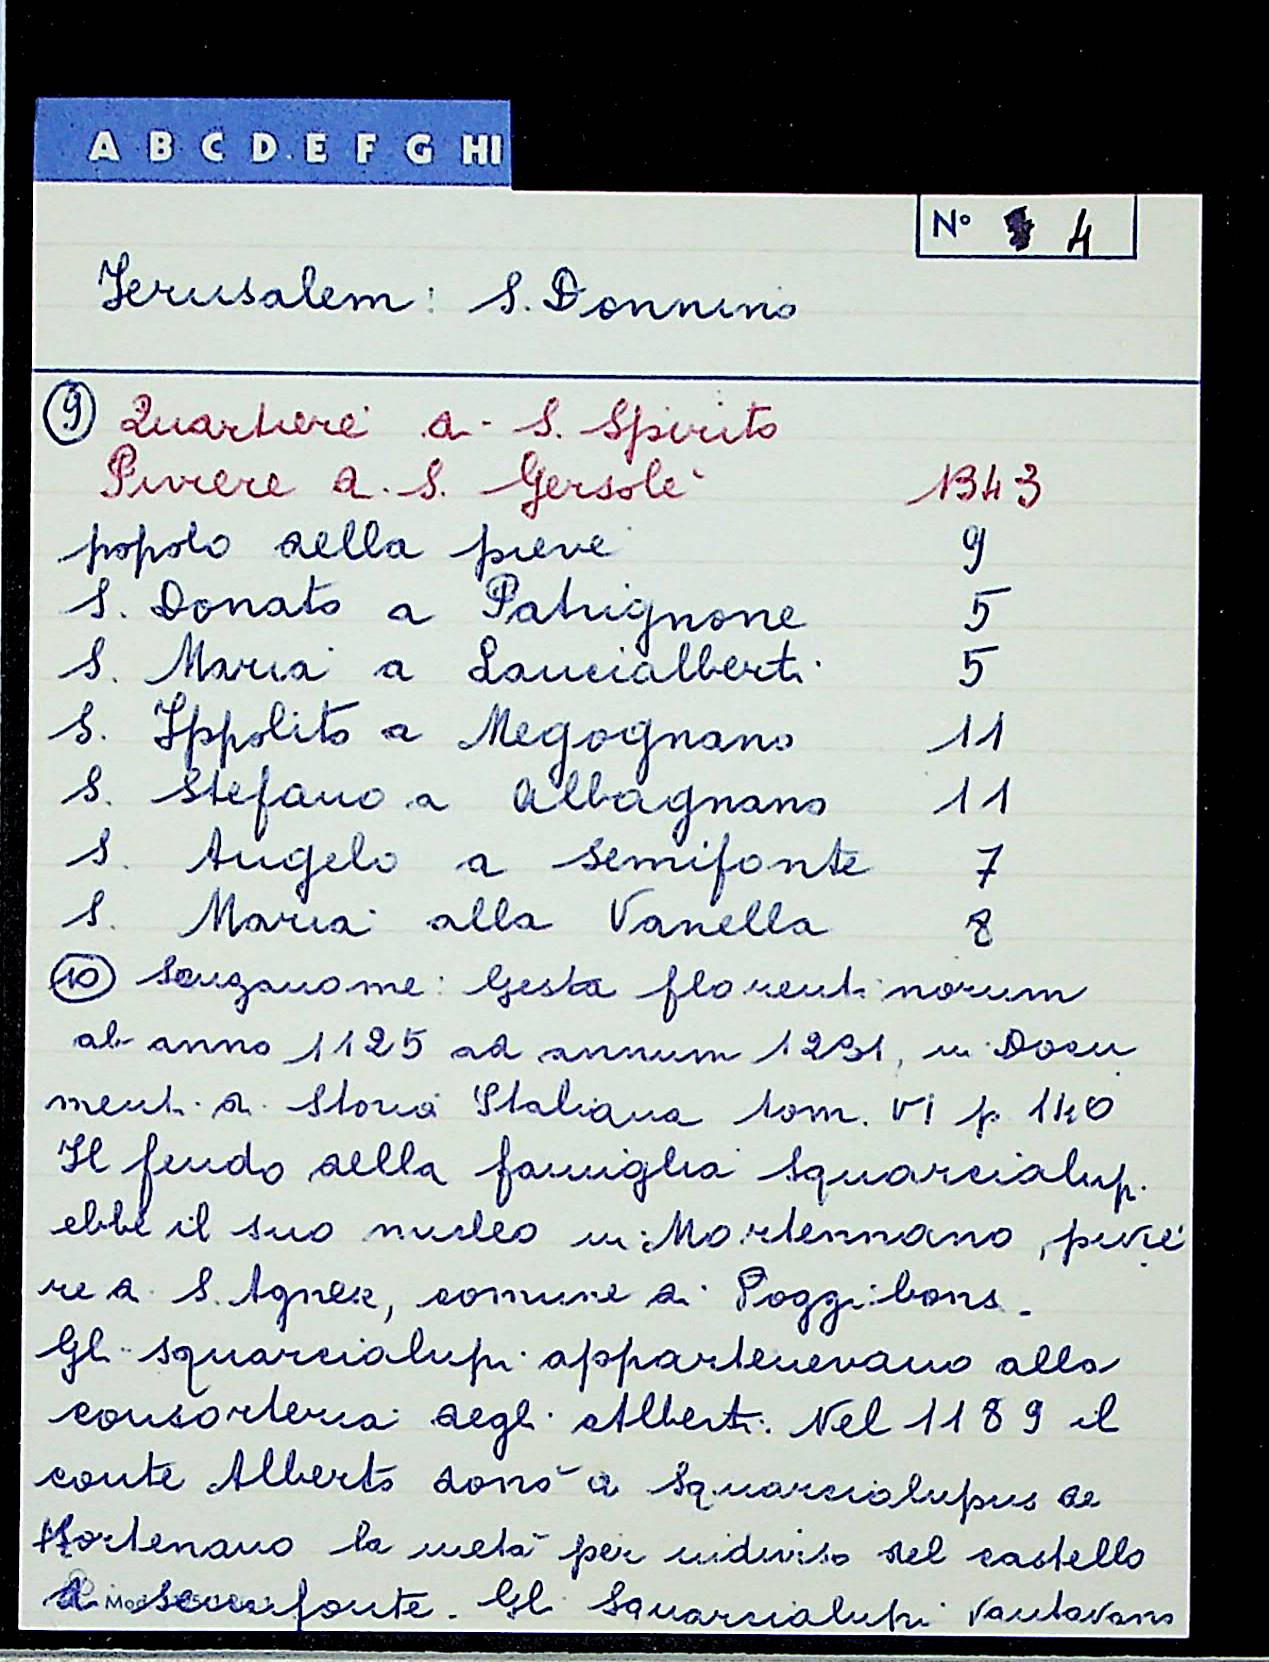 A B C D E F G HI
N° 4
Jerusalem: S. Donnino
⑨ Quartiere di S. Spirito
Piviere di S. Gersolè 1343
popolo della pieve 9
S. Donato a Patrignone 5
S. Maria a Lancialberti 5
S. Ippolito a Megognano 11
S. Stefano a Albagnano 11
S. Angelo a Semifonte 7
S. Maria alla Vanella 8
⑩ Sanzanome: Gesta florentinorum
ab anno 1125 ad annum 1231, in Docu
menti di Storia Italiana tom. VI p 140
Il feudo della famiglia Squarcialupi
ebbe il suo nucleo in Mortennano, pivie
re di S. Agnese, comune di Poggibonsi.
Gli Squarcialupi appartenevano alla
consorteria degli Alberti. Nel 1189 il
conte Alberto donò a Squarcialupus de
Mortenano la metà per indiviso del castello
di Semifonte. Gli Squarcialupi vantavano